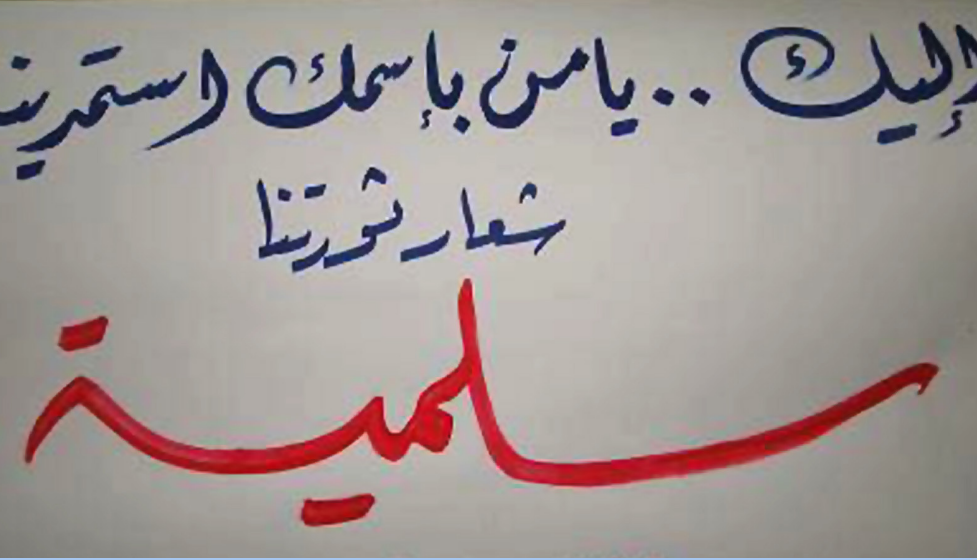 إليك .. يا من بإسمك استمدينا
شعار ثورتنا
سلمية